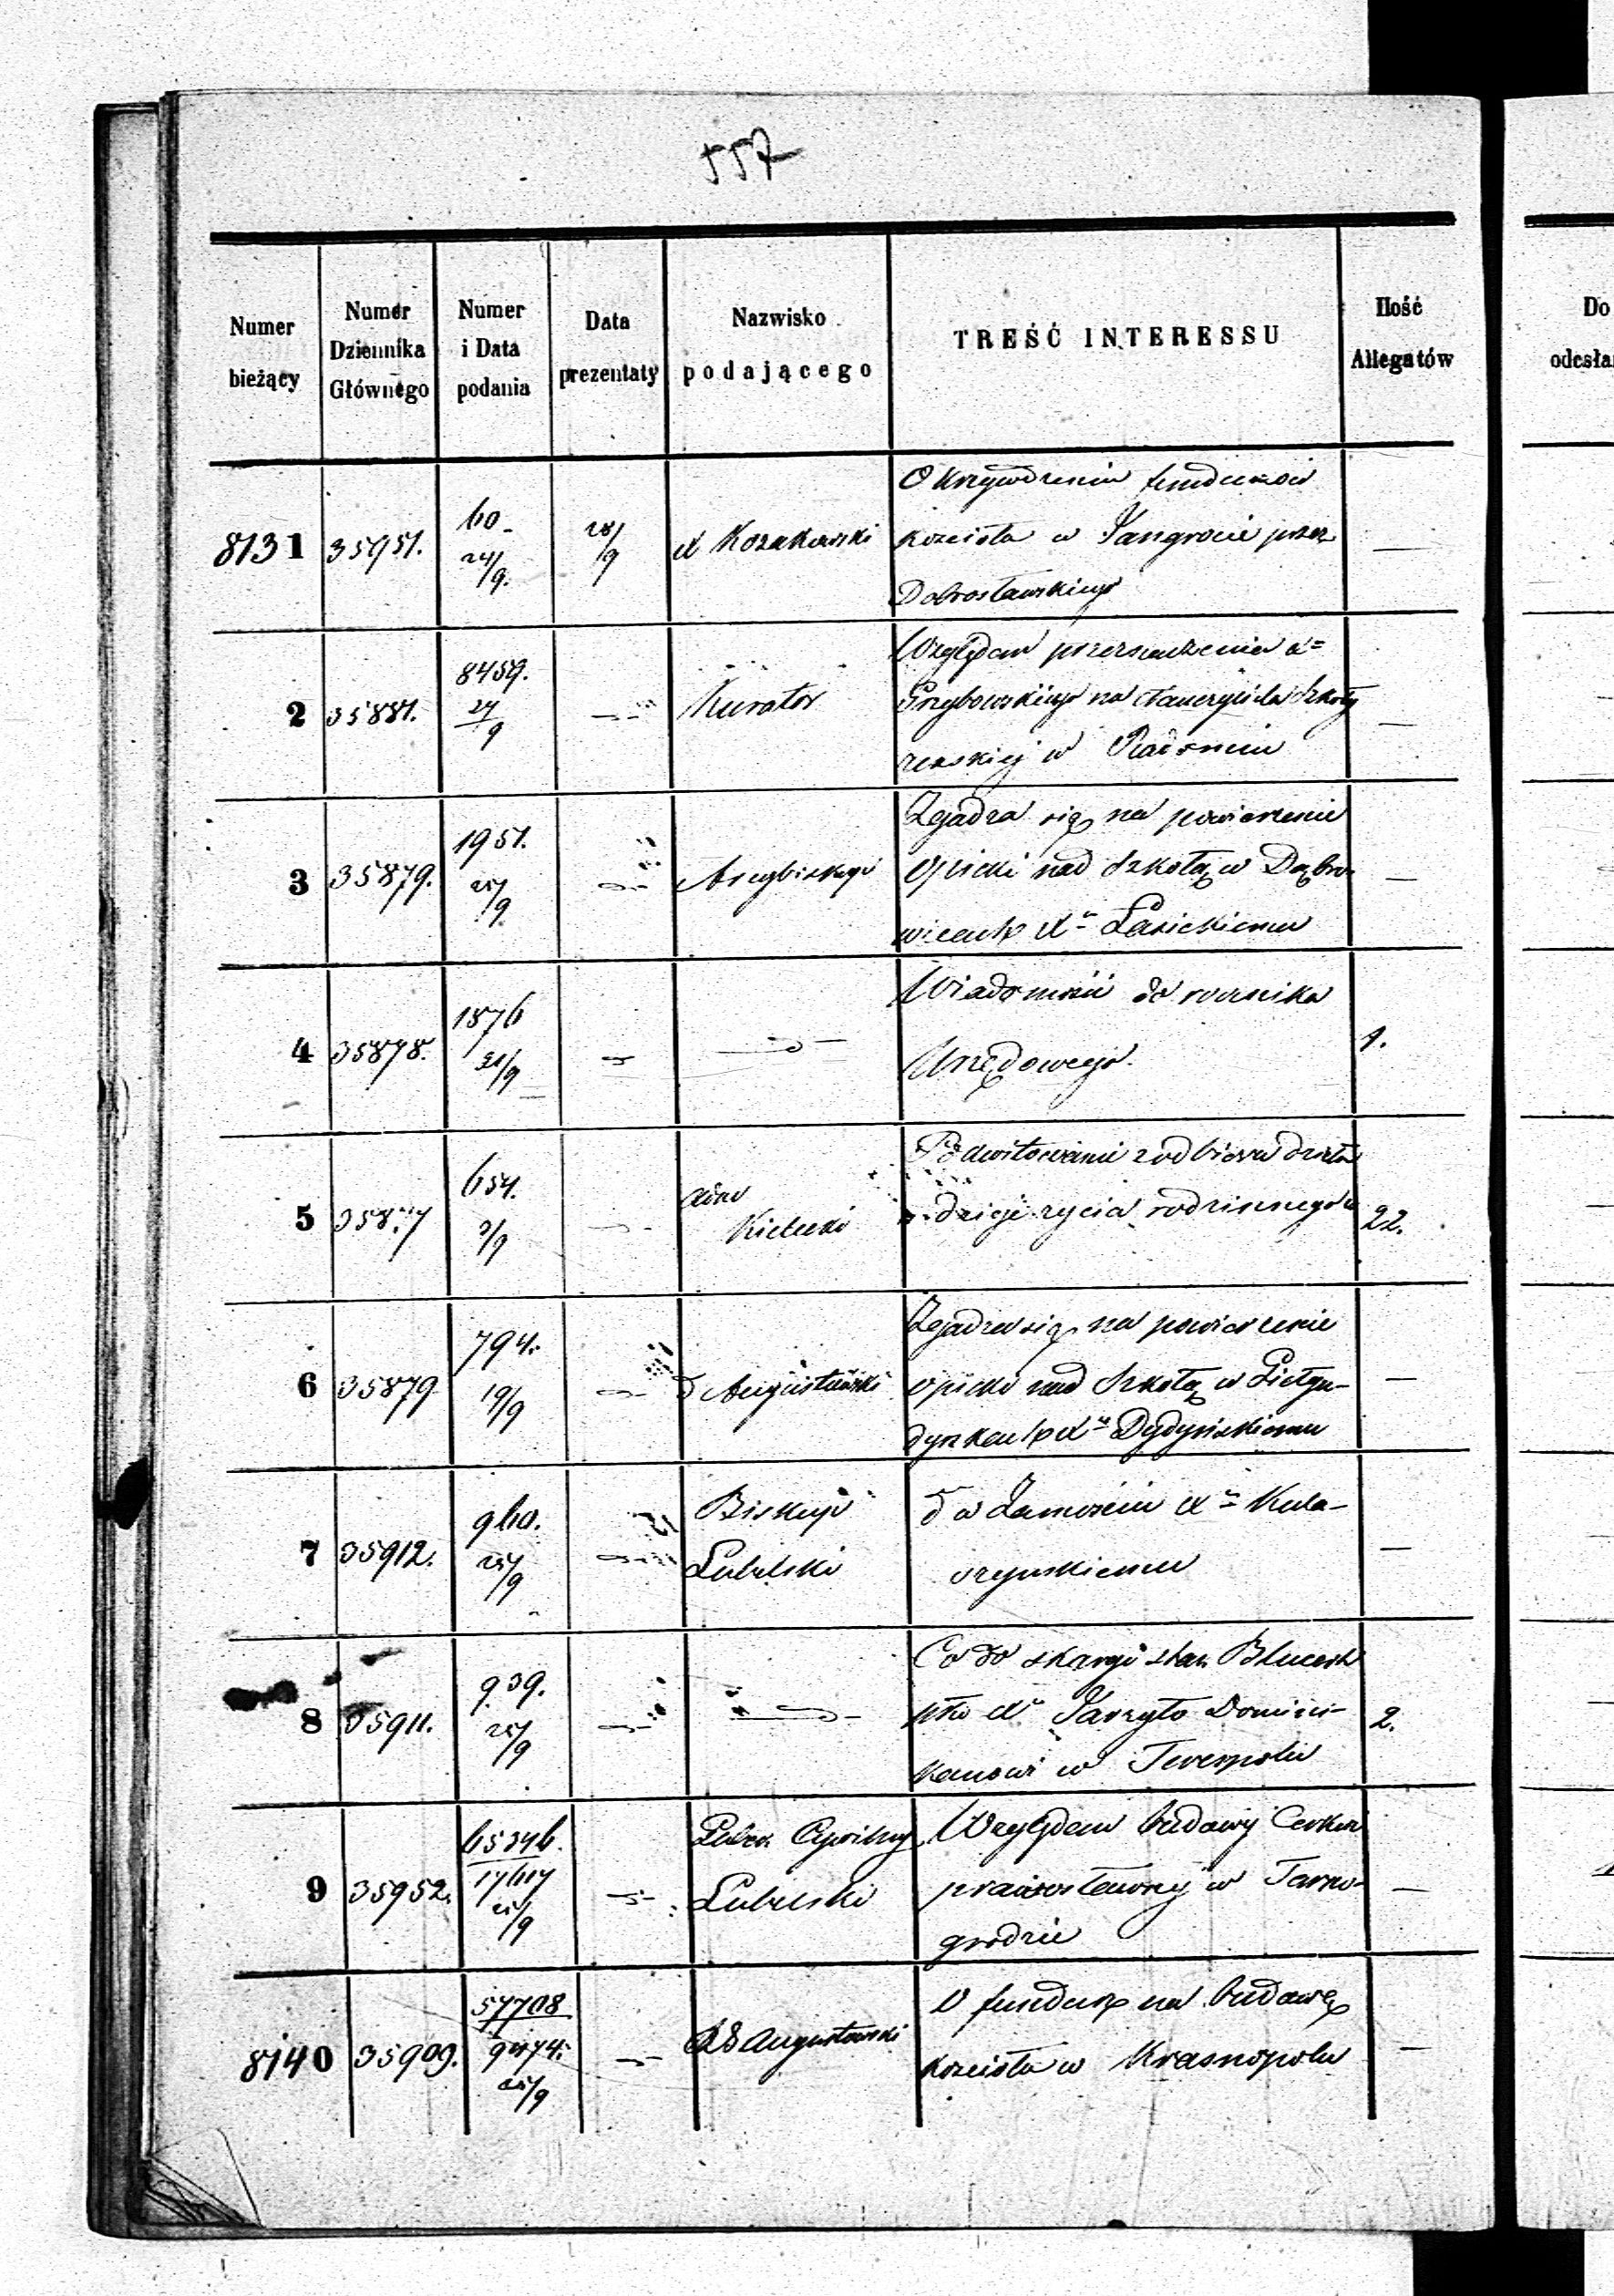 557
Numer bieżący
Numer Dziennika Głównego
Numer i Data podania
Data prezentaty
Nazwisko podającego
TREŚĆ INTERESSU
Ilość Allegatów
Do
odesła
8131 35951. 60 24/9. 28/9 X Kozakowski
O krzywdzeniu funduszów
kościoła w Jangrocie przez
Dobrosławskiego
2 35881. 8459. 24/9 Kurator
Względem przeznaczenia
Grzybowskiego na Nauczyciela Szkoły
w Radomiu
3 35879. 1951. 25/9 Arcybiskup
Zgadza się na powierzenie
Opieki nad Szkołą w Dąbro-
wicach Xu Łasickiemu
4 35878. 1876 21/9 — d —
Wiadomość do rocznika
Urzędowego.
1.
5 654. 3/9 Kielecki
Pokwitowanie z odbioru dzieła
życia rodzinnego
22.
6 35879 794. 19/9 d Augustowski
Zgadza się na powierzenie
opieki nad Szkołą w Giełgu-
dyszkach Xu Dydyńskiemu
7 35912. 960. 25/9 Biskup
Lubelski
d w Zamościu Xu Kula-
szyńskiemu
8 35911. 939. 25/9 — d —
Co do skargi
pko Xu Jarzyło Domini-
kanowi w Terespolu
2.
9 35952. 65246. 17617 21/9 Guber. Cywilny
Lubelski
Względem budowy Cerkwi
prawosławnej w Tarno-
grodzie
8140 35909. 57708 25/9 Augustowski
O fundusz na budowę
kościoła w Krasnopolu